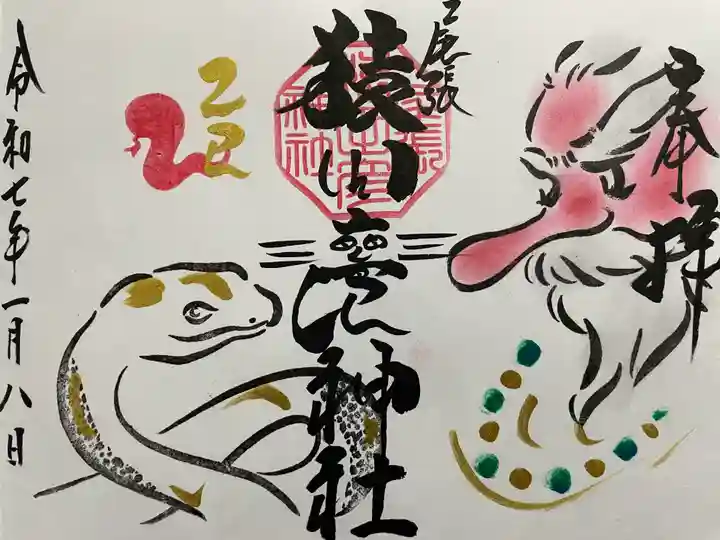 奉拝
尾張
猿田彦神社
乙巳
令和七年一月八日